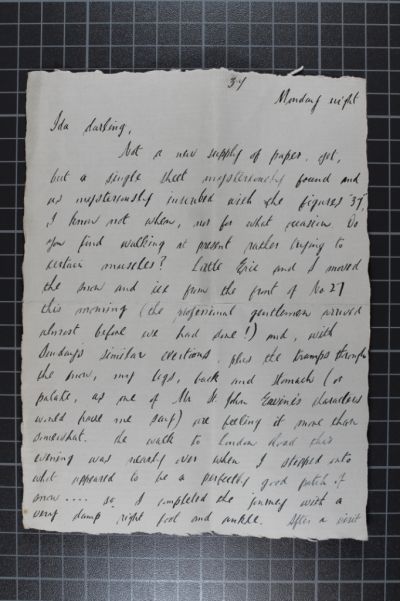 37
Monday night
Ida darling,
Not a new supply of paper, yet,
but a single sheet mysteriously found and
as mysteriously inscribed with the figures "37",
I know not when, nor for what reason. Do
you find walking at present rather trying to
certain muscles? Little Eric and I moved
the snow and ice from the front of No 27
this morning (the professional gentlemen arrived
almost before we had done!) and, with
Sunday's similar exertions, plus the tramps through
the snow, my legs, back and stomach (or
palate, as one of Mr St. John Ervine's characters
would have me say) are feeling it more than
somewhat. The walk to London Road this
evening was nearly over when I stepped into
what appeared to be a perfectly good patch of
snow .... so I completed the journey with a
very damp right foot and ankle. After a visit